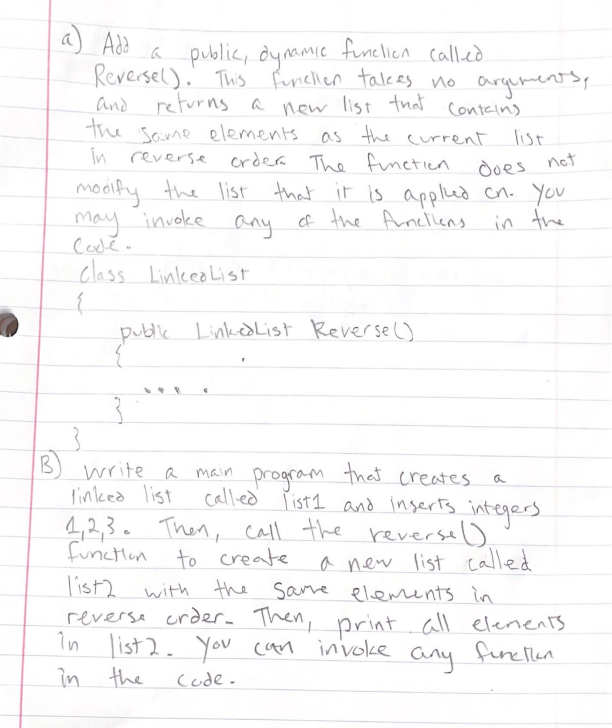 a) Add a public, dynamic function called
Reverse(). This function takes no arguments,
and returns a new list that contains
the same elements as the current list
in reverse order. The function does not
modify the list that it is applied on. You
may invoke any of the functions in the
Code.
Class LinkedList
{
public LinkedList Reverse()
{
....
}
}
B) Write a main program that creates a
linked list called list1 and inserts integers
1,2,3. Then, call the reverse()
function to create a new list called
list2 with the same elements in
reverse order. Then, print all elements
in list2. You can invoke any function
in the code.